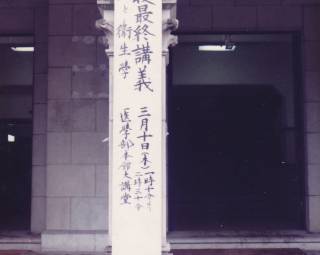 最終講義
と衛生學
三月十日(木)一時十分より
二時三十分
医學部本館大講堂